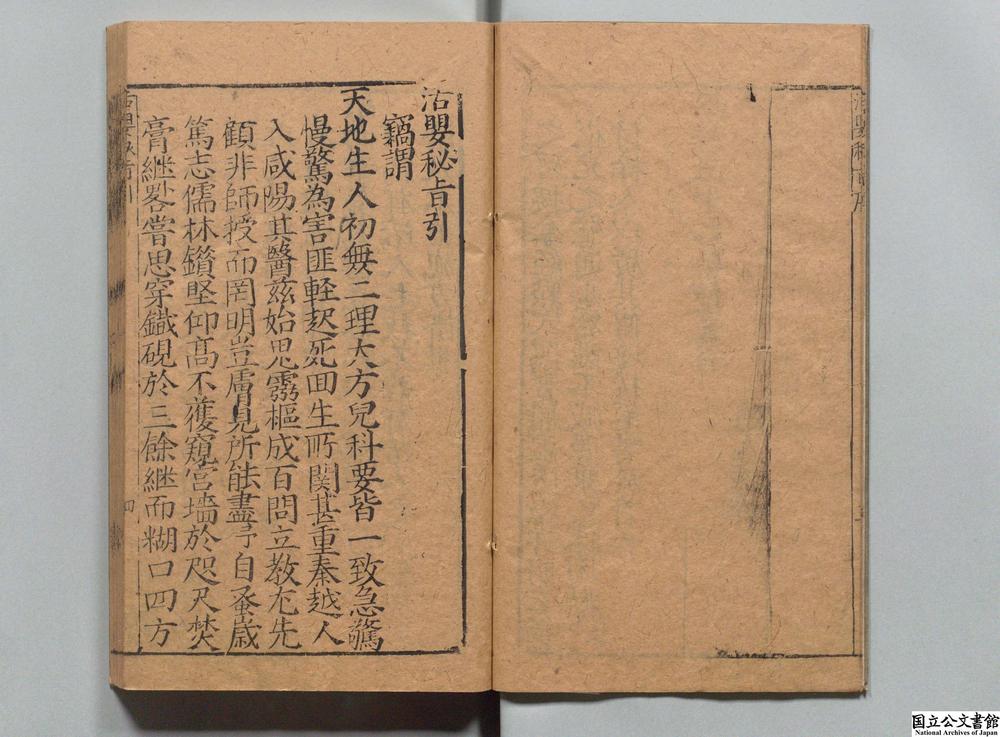 活嬰秘旨引
竊謂
天地生人初無二理大方兒科要皆一致急驚
慢驚為害匪輕起死回生所関甚重秦越人
入咸陽其醫兹始思靈樞成百問立教尤先
顧非師授而罔明豈膚見所能盡予自蚤歳
篤志儒林鑚堅仰髙不獲窺宮墻於咫尺焚
膏継晷嘗思穿鐡硯於三餘継而糊口四方
四
国立公文書館
National Archives of Japan